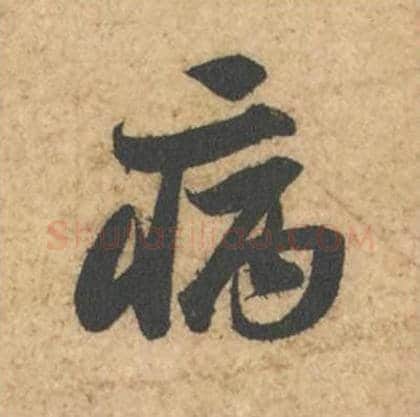 病
shufaziliao.com